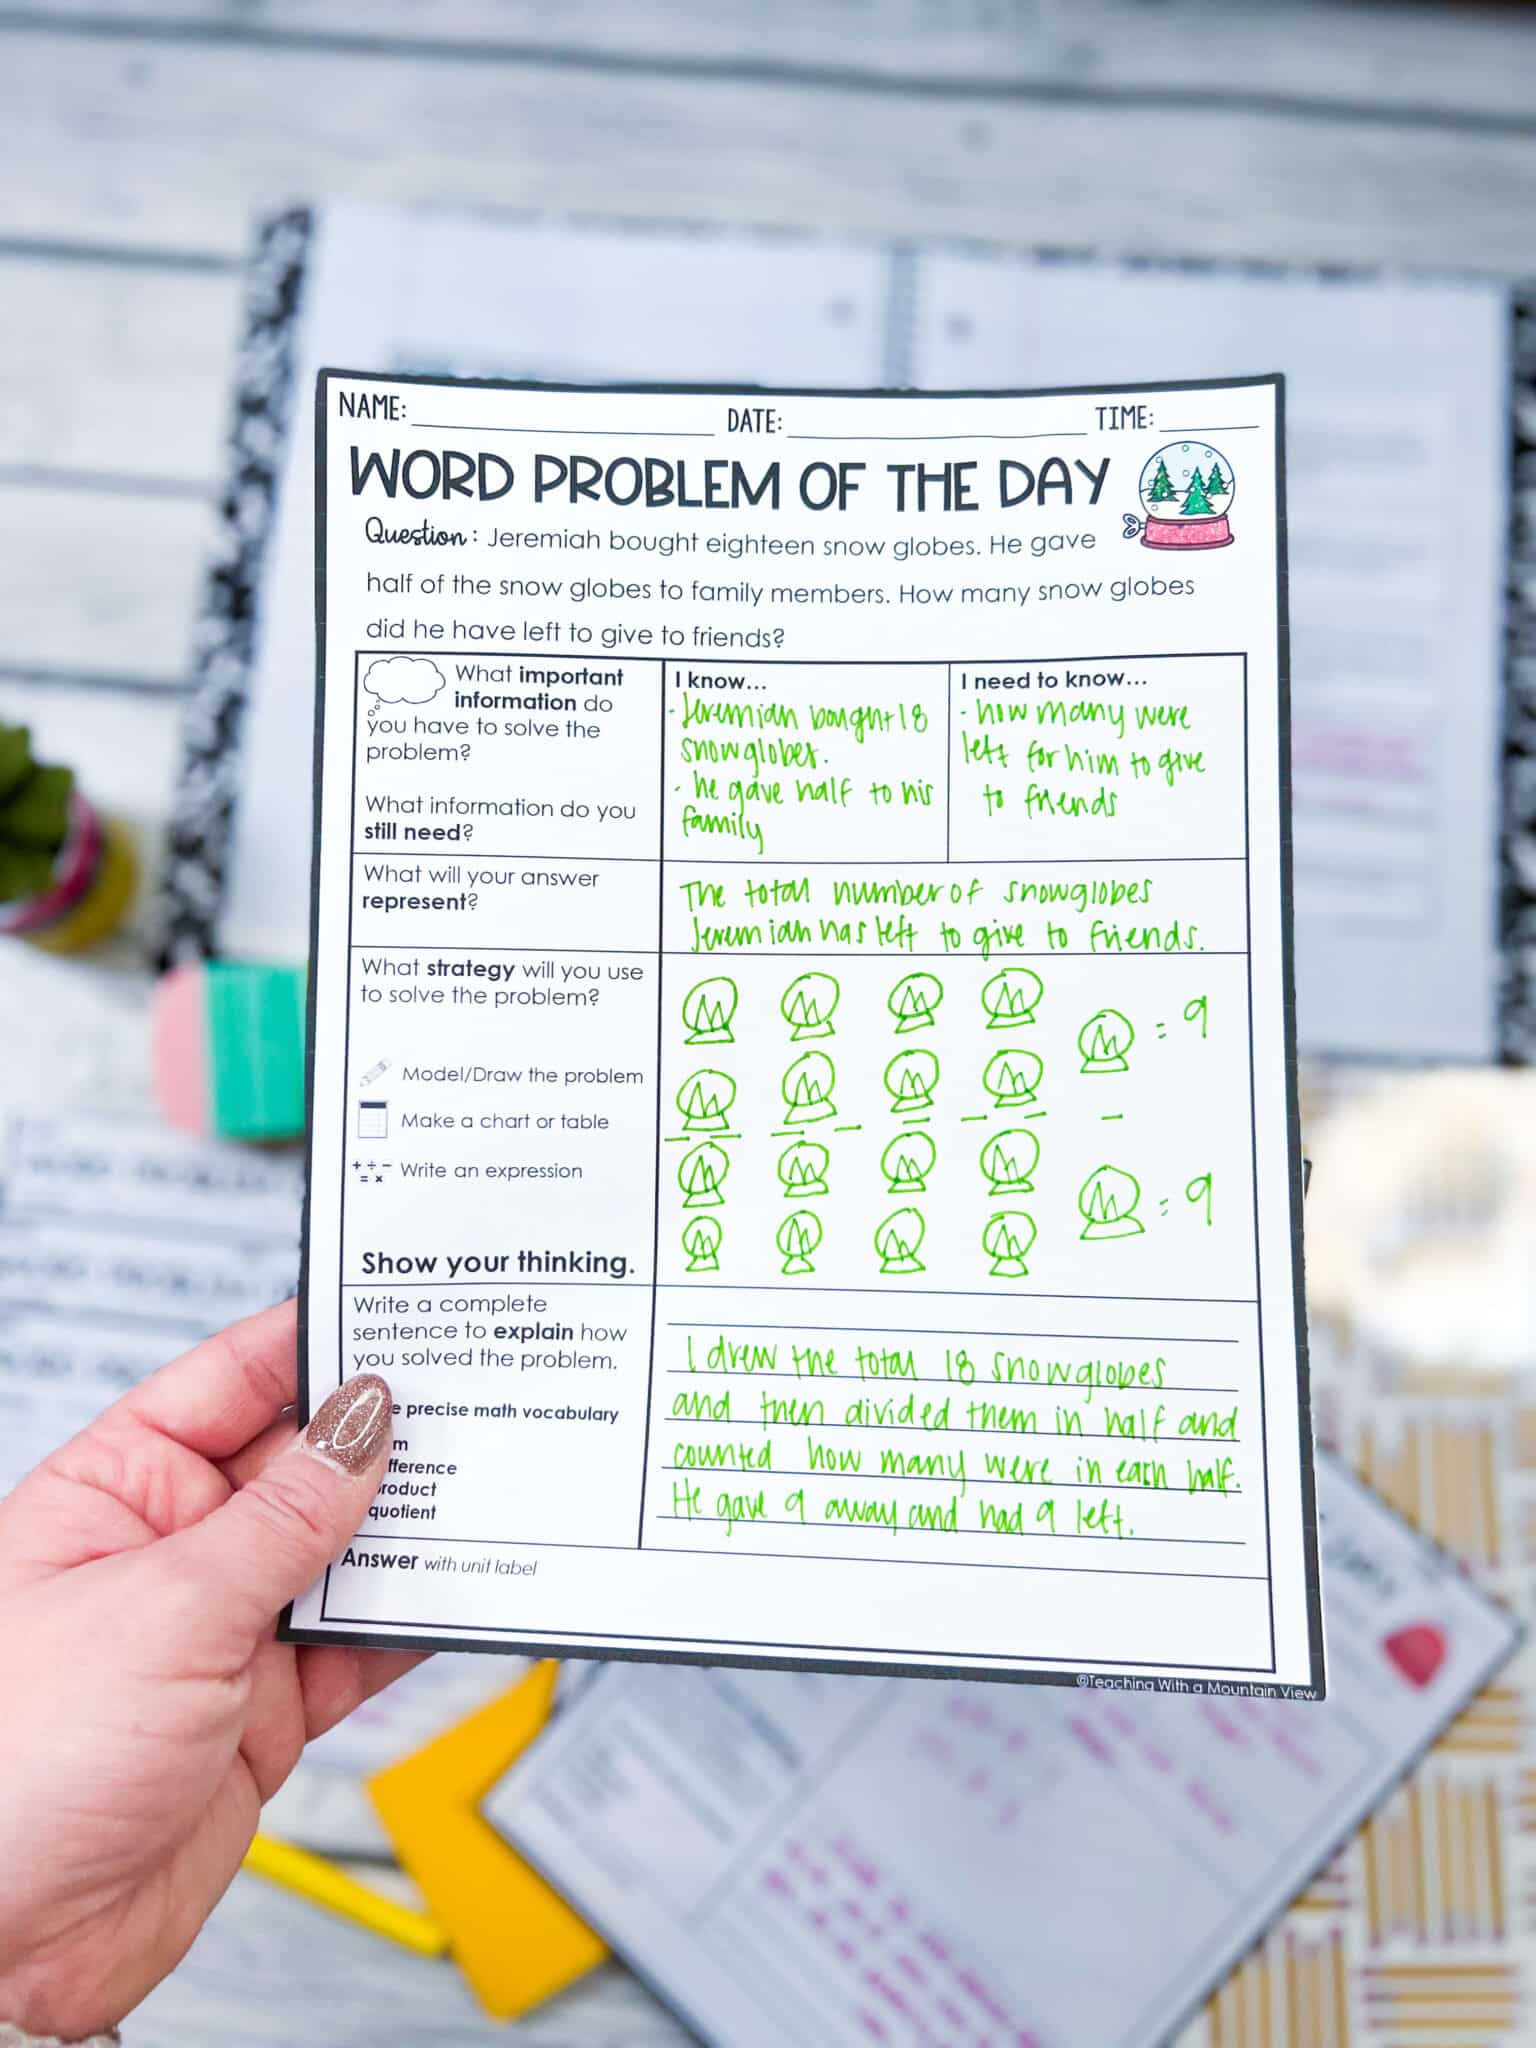 NAME: DATE: TIME:
WORD PROBLEM OF THE DAY
Question: Jeremiah bought eighteen snow globes. He gave
half of the snow globes to family members. How many snow globes
did he have left to give to friends?
What important
information do
you have to solve the
problem?
What information do you
still need?
I know...
- Jeremiah bought 18
snowglobes.
- he gave half to his
family
I need to know...
- how many were
left for him to give
to friends
What will your answer
represent?
The total number of snowglobes
Jeremiah has left to give to friends.
What strategy will you use
to solve the problem?
Model/Draw the problem
Make a chart or table
+ ÷ − = x Write an expression
Show your thinking.
= 9
= 9
Write a complete
sentence to explain how
you solved the problem.
e precise math vocabulary
m
fference
roduct
quotient
I drew the total 18 snowglobes
and then divided them in half and
counted how many were in each half.
He gave 9 away and had 9 left.
Answer with unit label
©Teaching With a Mountain View